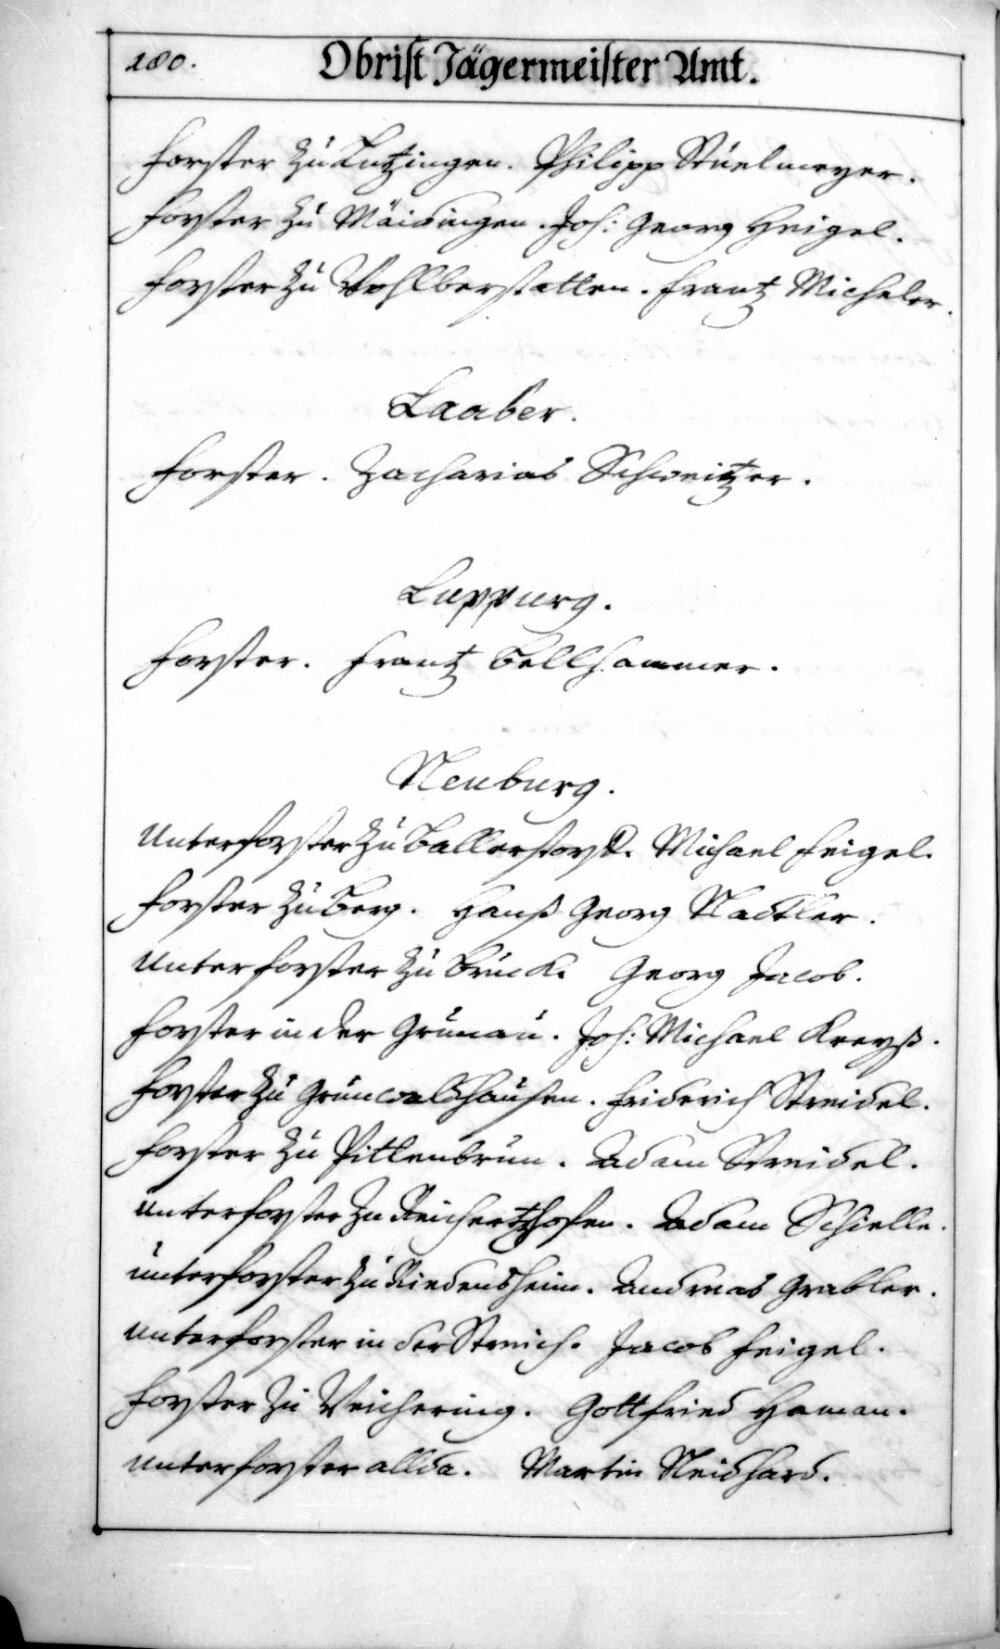 180.
Obrist Jägermeister Amt.
Forster zu Lutzingen. Philipp Stüelmeyer.
Forster zu Mäidingen. Joh: Georg Heigel.
Forster zu Wohlberstatten. Frantz Micheler.
Laaber.
Forster. Zacharias Schweitzer.
Luppurg.
Forster. Frantz Böllhammer.
Neuburg.
Unterforster zu Ballerstorff. Michael Feigel.
Forster zu Berg. Hanß Georg Stadler.
Unterforster zu Bruck. Georg Jacob.
Forster in der Grünau. Joh: Michael Kreyß.
Forster zu Grünwalshausen. Friderich Streidel.
Forster zu Pittenbrun. Adam Streidel.
Unterforster zu Reichertzhofen. Adam Schielle.
Unterforster zu Riedensheim. Andreas Grabler.
Unterforster in der Streich. Jacob Feigel.
Forster zu Weichering. Gottfried Haman.
Unterforster allda. Martin Neidhard.